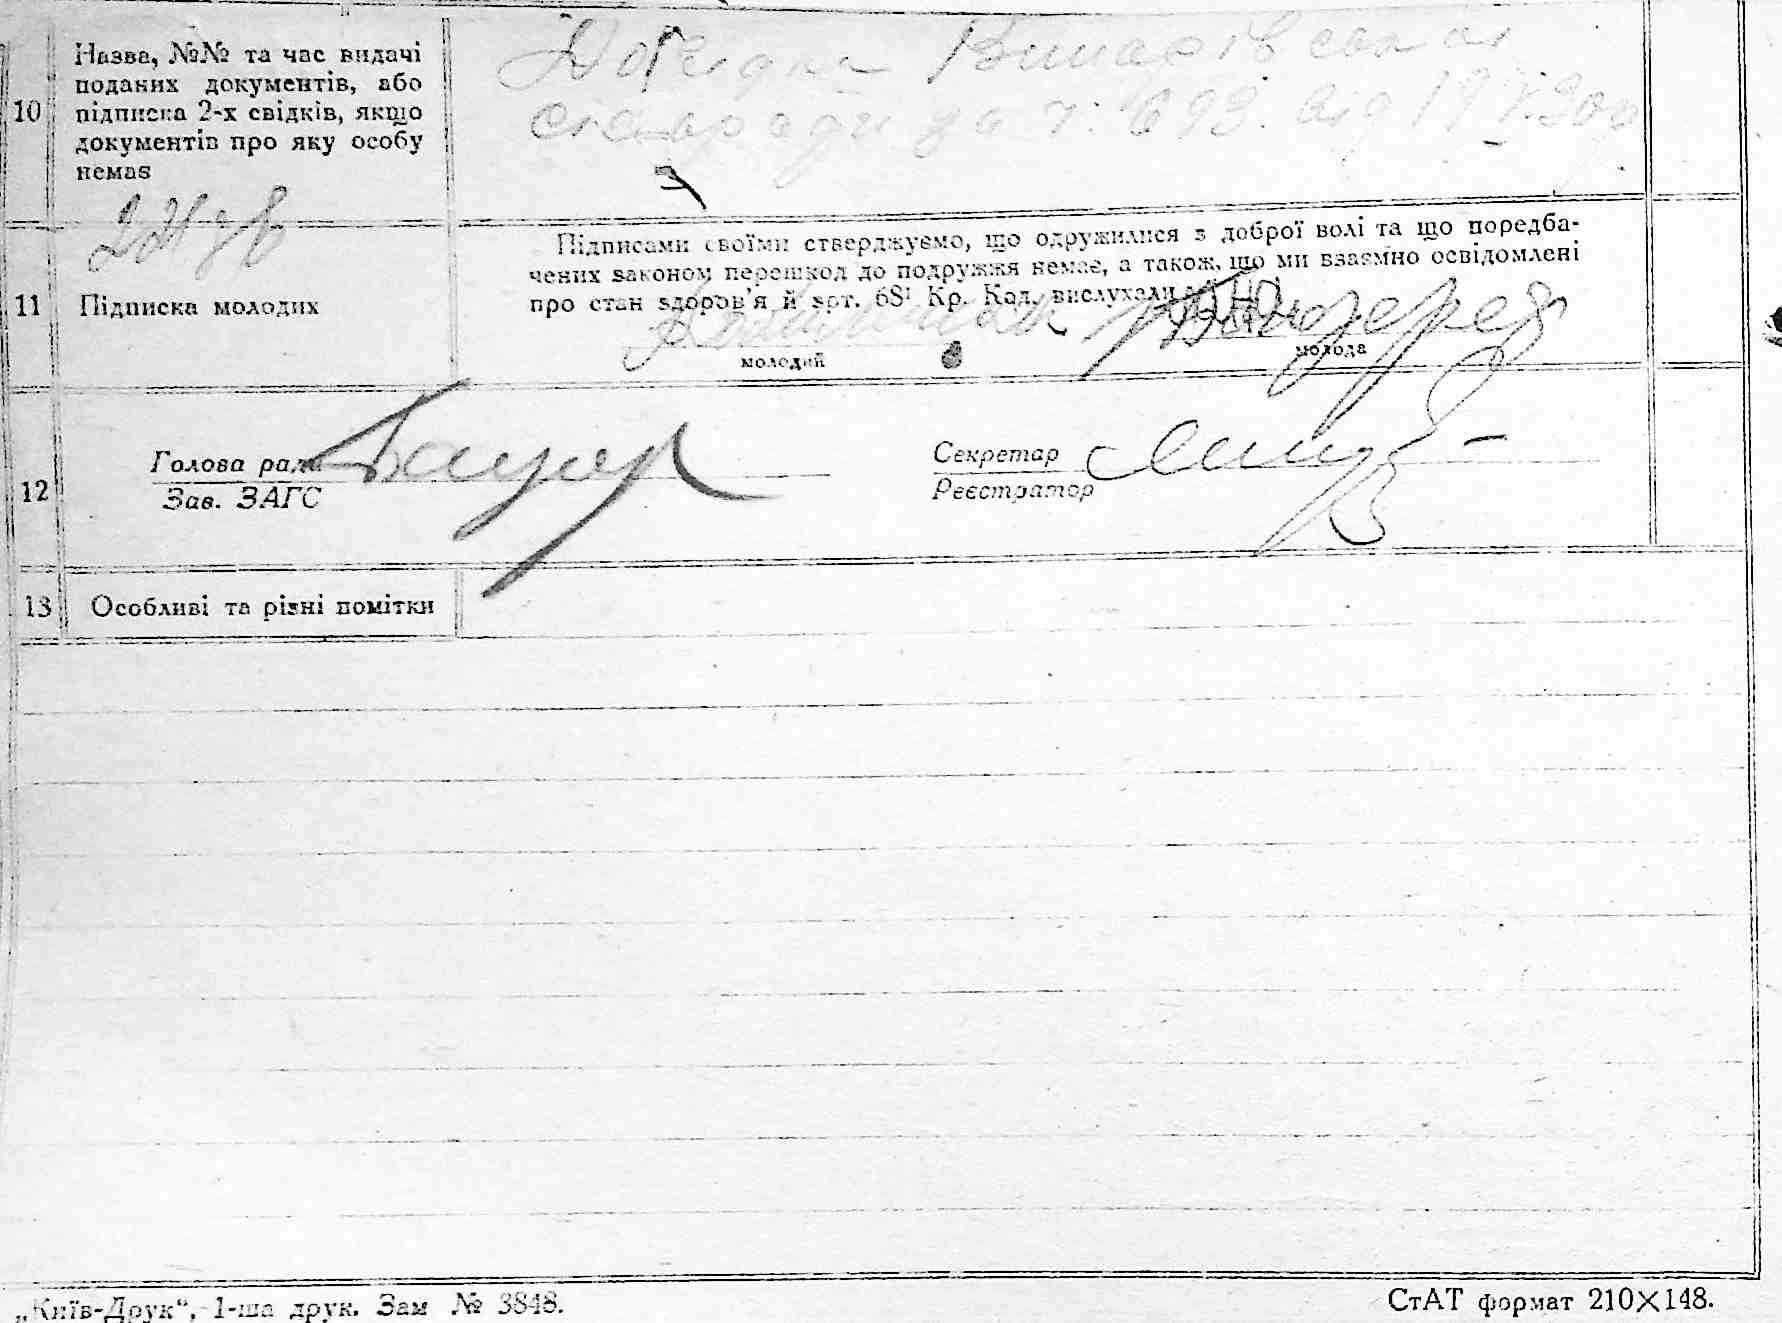 10 Назва, №№ та час видачі
поданих документів, або
підписка 2-х свідків, якщо
документів про яку особу
немає
Довидка
сільради за ч. 693. від 19
11 Підписка молодих
Підписами своїми стверджуємо, що одружилися з доброї волі та що поредба-
чених законом перешкод до подружжя немає, а також, що ми взаємно освідомлені
про стан здоров'я й арт. 68¹ Кр. Код. вислухали
молодий молода
12 Голова ради
Зав. ЗАГС
Секретар
Реєстратор
13 Особливі та різні помітки
„Київ-Друк“, 1-ша друк. Зам № 3848.
СтАТ формат 210×148.